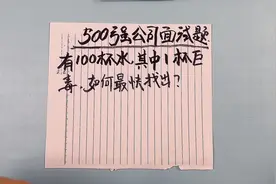 500强公司面试题
有100杯水,其中1杯巨
毒.如何最快找出?